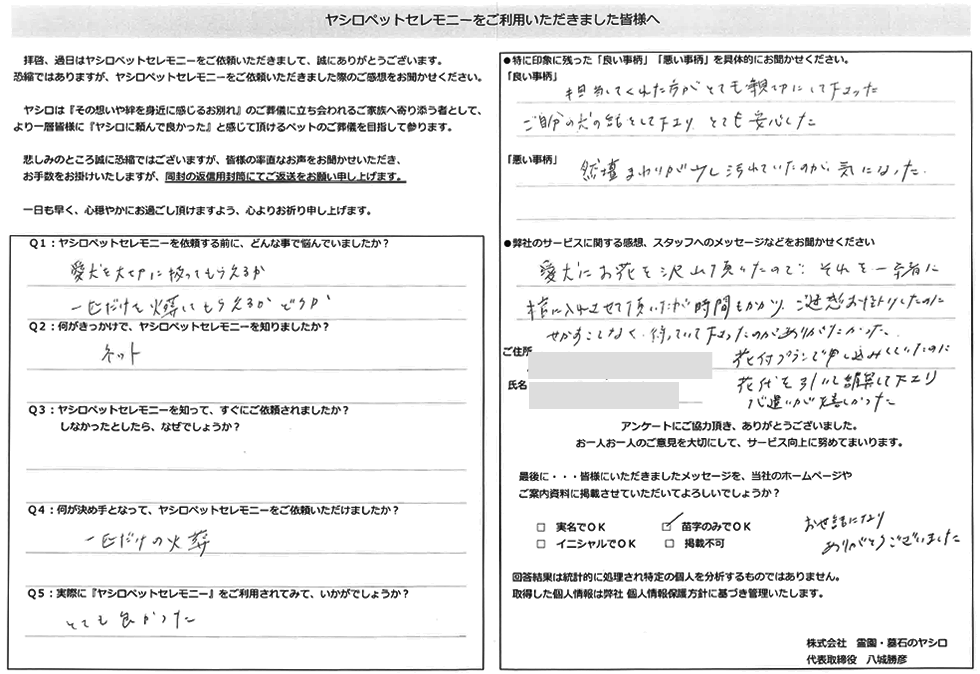 ヤシロペットセレモニーをご利用いただきました皆様へ
拝啓、過日はヤシロペットセレモニーをご依頼いただきまして、誠にありがとうございます。
恐縮ではありますが、ヤシロペットセレモニーをご依頼いただきました際のご感想をお聞かせください。
ヤシロは『その想いや絆を身近に感じるお別れ』のご葬儀に立ち会われるご家族へ寄り添う者として、
より一層皆様に『ヤシロに頼んで良かった』と感じて頂けるペットのご葬儀を目指して参ります。
悲しみのところ誠に恐縮ではございますが、皆様の率直なお声をお聞かせいただき、
お手数をお掛けいたしますが、同封の返信用封筒にてご返送をお願い申し上げます。
一日も早く、心穏やかにお過ごし頂けますよう、心よりお祈り申し上げます。
Q1：ヤシロペットセレモニーを依頼する前に、どんな事で悩んでいましたか？
愛犬を大切に扱ってもらえるか
一匹だけを火葬してもらえるかどうか
Q2：何がきっかけで、ヤシロペットセレモニーを知りましたか？
ネット
Q3：ヤシロペットセレモニーを知って、すぐにご依頼されましたか？
しなかったとしたら、なぜでしょうか？
Q4：何が決め手となって、ヤシロペットセレモニーをご依頼いただけましたか？
一匹だけの火葬
Q5：実際に『ヤシロペットセレモニー』をご利用されてみて、いかがでしょうか？
とても良かった
●特に印象に残った「良い事柄」「悪い事柄」を具体的にお聞かせください。
「良い事柄」
担当してくれた方がとても親切にして下さった
ご自分の犬の話をして下さり とても安心した
「悪い事柄」
祭壇まわりが少し汚れていたのが、気になった.
●弊社のサービスに関する感想、スタッフへのメッセージなどをお聞かせください
愛犬にお花を沢山頂いたので、それを一緒に
棺に入れさせて頂いたが時間もかかり、ご迷惑おかけしたのに
せかすことなく、待っていて下さったのがありがたかった.
ご住所
花付プランで申し込みしていたのに
氏名
花代を引いて請求して下さり
心遣いが嬉しかった
アンケートにご協力頂き、ありがとうございました。
お一人お一人のご意見を大切にして、サービス向上に努めてまいります。
最後に・・・皆様にいただきましたメッセージを、当社のホームページや
ご案内資料に掲載させていただいてよろしいでしょうか？
□ 実名でOK ☑ 苗字のみでOK
□ イニシャルでOK □ 掲載不可
お世話になり
ありがとうございました
回答結果は統計的に処理され特定の個人を分析するものではありません。
取得した個人情報は弊社 個人情報保護方針に基づき管理いたします。
株式会社 霊園・墓石のヤシロ
代表取締役 八城勝彦